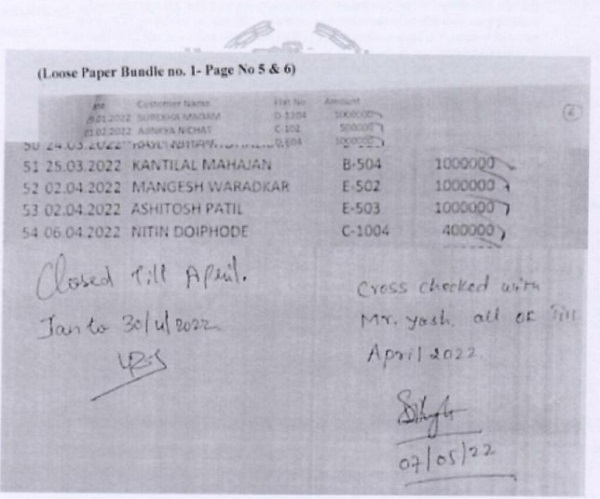 (Loose Paper Bundle no. 1- Page No 5 & 6)
Customer Name Flat No Amount
.01.2022 SUREKHA MADAM D-1204 1000000
01.02.2022 NICHAT C-102 500000
50 24.03.2022 D-604 1000000
51 25.03.2022 KANTILAL MAHAJAN B-504 1000000
52 02.04.2022 MANGESH WARADKAR E-502 1000000
53 02.04.2022 ASHITOSH PATIL E-503 1000000
54 06.04.2022 NITIN DOIPHODE C-1004 400000
Closed Till April.
Jan to 30/4/2022
Cross checked with
Mr. Yash. all ok Till
April 2022
07/05/22